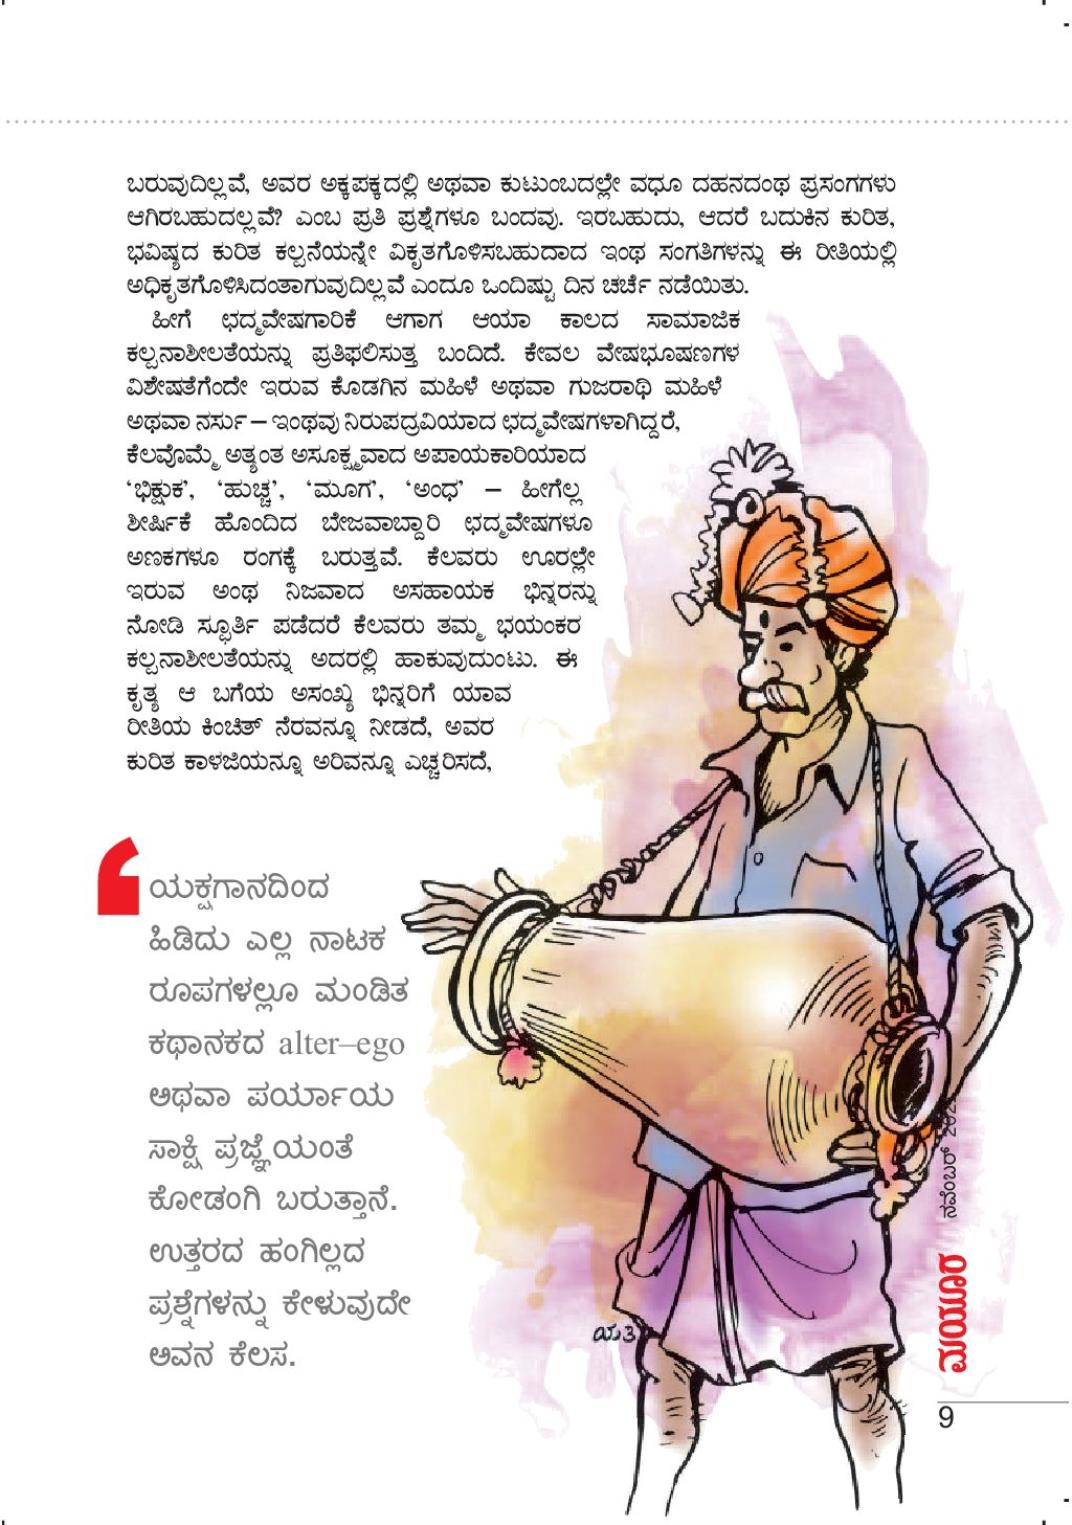 ಬರುವುದಿಲ್ಲವೆ, ಅವರ ಅಕ್ಕಪಕ್ಕದಲ್ಲಿ ಅಥವಾ ಕುಟುಂಬದಲ್ಲೇ ವಧೂ ದಹನದಂಥ ಪ್ರಸಂಗಗಳು
ಆಗಿರಬಹುದಲ್ಲವೆ? ಎಂಬ ಪ್ರತಿ ಪ್ರಶ್ನೆಗಳೂ ಬಂದವು. ಇರಬಹುದು, ಆದರೆ ಬದುಕಿನ ಕುರಿತ,
ಭವಿಷ್ಯದ ಕುರಿತ ಕಲ್ಪನೆಯನ್ನೇ ವಿಕೃತಗೊಳಿಸಬಹುದಾದ ಇಂಥ ಸಂಗತಿಗಳನ್ನು ಈ ರೀತಿಯಲ್ಲಿ
ಅಧಿಕೃತಗೊಳಿಸಿದಂತಾಗುವುದಿಲ್ಲವೆ ಎಂದೂ ಒಂದಿಷ್ಟು ದಿನ ಚರ್ಚೆ ನಡೆಯಿತು.
ಹೀಗೆ ಛದ್ಮವೇಷಗಾರಿಕೆ ಆಗಾಗ ಆಯಾ ಕಾಲದ ಸಾಮಾಜಿಕ
ಕಲ್ಪನಾಶೀಲತೆಯನ್ನು ಪ್ರತಿಫಲಿಸುತ್ತ ಬಂದಿದೆ. ಕೇವಲ ವೇಷಭೂಷಣಗಳ
ವಿಶೇಷತೆಗೆಂದೇ ಇರುವ ಕೊಡಗಿನ ಮಹಿಳೆ ಅಥವಾ ಗುಜರಾಥಿ ಮಹಿಳೆ
ಅಥವಾ ನರ್ಸು – ಇಂಥವು ನಿರುಪದ್ರವಿಯಾದ ಛದ್ಮವೇಷಗಳಾಗಿದ್ದರೆ,
ಕೆಲವೊಮ್ಮೆ ಅತ್ಯಂತ ಅಸೂಕ್ಷ್ಮವಾದ ಅಪಾಯಕಾರಿಯಾದ
‘ಭಿಕ್ಷುಕ’, ‘ಹುಚ್ಚ’, ‘ಮೂಗ’, ‘ಅಂಧ’ – ಹೀಗೆಲ್ಲ
ಶೀರ್ಷಿಕೆ ಹೊಂದಿದ ಬೇಜವಾಬ್ದಾರಿ ಛದ್ಮವೇಷಗಳೂ
ಅಣಕಗಳೂ ರಂಗಕ್ಕೆ ಬರುತ್ತವೆ. ಕೆಲವರು ಊರಲ್ಲೇ
ಇರುವ ಅಂಥ ನಿಜವಾದ ಅಸಹಾಯಕ ಭಿನ್ನರನ್ನು
ನೋಡಿ ಸ್ಫೂರ್ತಿ ಪಡೆದರೆ ಕೆಲವರು ತಮ್ಮ ಭಯಂಕರ
ಕಲ್ಪನಾಶೀಲತೆಯನ್ನು ಅದರಲ್ಲಿ ಹಾಕುವುದುಂಟು. ಈ
ಕೃತ್ಯ ಆ ಬಗೆಯ ಅಸಂಖ್ಯ ಭಿನ್ನರಿಗೆ ಯಾವ
ರೀತಿಯ ಕಿಂಚಿತ್ ನೆರವನ್ನೂ ನೀಡದೆ, ಅವರ
ಕುರಿತ ಕಾಳಜಿಯನ್ನೂ ಅರಿವನ್ನೂ ಎಚ್ಚರಿಸದೆ,
‘ಯಕ್ಷಗಾನದಿಂದ
ಹಿಡಿದು ಎಲ್ಲ ನಾಟಕ
ರೂಪಗಳಲ್ಲೂ ಮಂಡಿತ
ಕಥಾನಕದ alter–ego
ಅಥವಾ ಪರ್ಯಾಯ
ಸಾಕ್ಷಿ ಪ್ರಜ್ಞೆಯಂತೆ
ಕೋಡಂಗಿ ಬರುತ್ತಾನೆ.
ಉತ್ತರದ ಹಂಗಿಲ್ಲದ
ಪ್ರಶ್ನೆಗಳನ್ನು ಕೇಳುವುದೇ
ಅವನ ಕೆಲಸ.
ಮಯೂರ ನವೆಂಬರ್
9